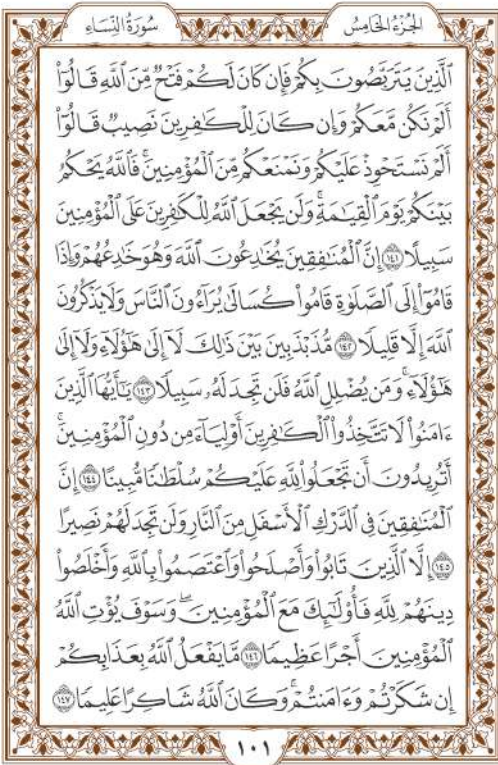 الجُزْءُ الخَامِسُ
سُورَةُ النِّسَاءِ
ٱلَّذِينَ يَتَرَبَّصُونَ بِكُمْ فَإِن كَانَ لَكُمْ فَتْحٌ مِّنَ ٱللَّهِ قَالُوٓا۟
أَلَمْ نَكُن مَّعَكُمْ وَإِن كَانَ لِلْكَٰفِرِينَ نَصِيبٌ قَالُوٓا۟
أَلَمْ نَسْتَحْوِذْ عَلَيْكُمْ وَنَمْنَعْكُم مِّنَ ٱلْمُؤْمِنِينَۚ فَٱللَّهُ يَحْكُمُ
بَيْنَكُمْ يَوْمَ ٱلْقِيَٰمَةِۗ وَلَن يَجْعَلَ ٱللَّهُ لِلْكَٰفِرِينَ عَلَى ٱلْمُؤْمِنِينَ
سَبِيلًا ١٤١ إِنَّ ٱلْمُنَٰفِقِينَ يُخَٰدِعُونَ ٱللَّهَ وَهُوَ خَٰدِعُهُمْ وَإِذَا
قَامُوٓا۟ إِلَى ٱلصَّلَوٰةِ قَامُوا۟ كُسَالَىٰ يُرَآءُونَ ٱلنَّاسَ وَلَا يَذْكُرُونَ
ٱللَّهَ إِلَّا قَلِيلًا ١٤٢ مُّذَبْذَبِينَ بَيْنَ ذَٰلِكَ لَآ إِلَىٰ هَٰٓؤُلَآءِ وَلَآ إِلَىٰ
هَٰٓؤُلَآءِۚ وَمَن يُضْلِلِ ٱللَّهُ فَلَن تَجِدَ لَهُۥ سَبِيلًا ١٤٣ يَٰٓأَيُّهَا ٱلَّذِينَ
ءَامَنُوا۟ لَا تَتَّخِذُوا۟ ٱلْكَٰفِرِينَ أَوْلِيَآءَ مِن دُونِ ٱلْمُؤْمِنِينَۚ
أَتُرِيدُونَ أَن تَجْعَلُوا۟ لِلَّهِ عَلَيْكُمْ سُلْطَٰنًا مُّبِينًا ١٤٤ إِنَّ
ٱلْمُنَٰفِقِينَ فِى ٱلدَّرْكِ ٱلْأَسْفَلِ مِنَ ٱلنَّارِ وَلَن تَجِدَ لَهُمْ نَصِيرًا
١٤٥ إِلَّا ٱلَّذِينَ تَابُوا۟ وَأَصْلَحُوا۟ وَٱعْتَصَمُوا۟ بِٱللَّهِ وَأَخْلَصُوا۟
دِينَهُمْ لِلَّهِ فَأُو۟لَٰٓئِكَ مَعَ ٱلْمُؤْمِنِينَۖ وَسَوْفَ يُؤْتِ ٱللَّهُ
ٱلْمُؤْمِنِينَ أَجْرًا عَظِيمًا ١٤٦ مَّا يَفْعَلُ ٱللَّهُ بِعَذَابِكُمْ
إِن شَكَرْتُمْ وَءَامَنتُمْۚ وَكَانَ ٱللَّهُ شَاكِرًا عَلِيمًا ١٤٧
١٠١